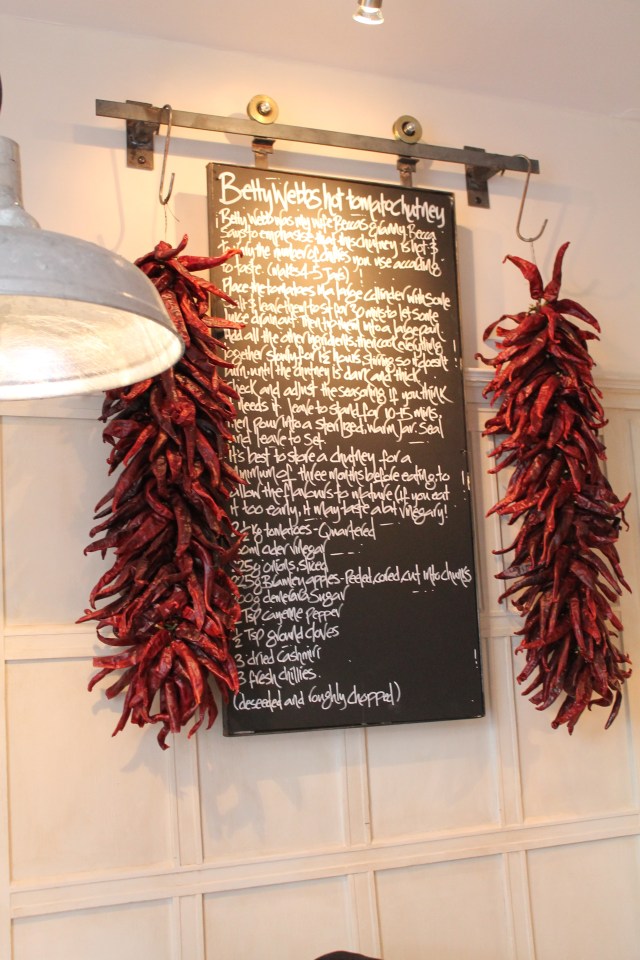 Betty Webbs hot tomato chutney
Betty Webb was my wife Becca's Granny. Becca
says to emphasise that this chutney is hot &
to vary the number of chillies you use according
to taste. (makes 4-5 Jars)
Place the tomatoes in a large cullender with some
salt & leave them to sit for 30 mins to let some
juice drain out. Then tip them into a large pan.
Add all the other ingredients, then cook everything
together slowly for 1½ hours, stirring so it doesnt
burn, until the chutney is dark and thick.
Check and adjust the seasoning if you think
it needs it. leave to stand for 10-15 mins,
then pour into a sterilized, warm Jar. Seal
and leave to set.
It's best to store a chutney for a
minimum of three months before eating, to
allow the flavours to mature (if you eat
it too early, it may taste a lot vinegary!
½ kg tomatoes - Quartered
0ml cider vinegar
225g onions, sliced
225g Bramley apples - Peeled, cored, cut into chunks
00g demerara Sugar
Tsp cayenne pepper
½ Tsp ground cloves
3 dried Cashmiri
3 fresh chillies.
(deseeded and roughly chopped)